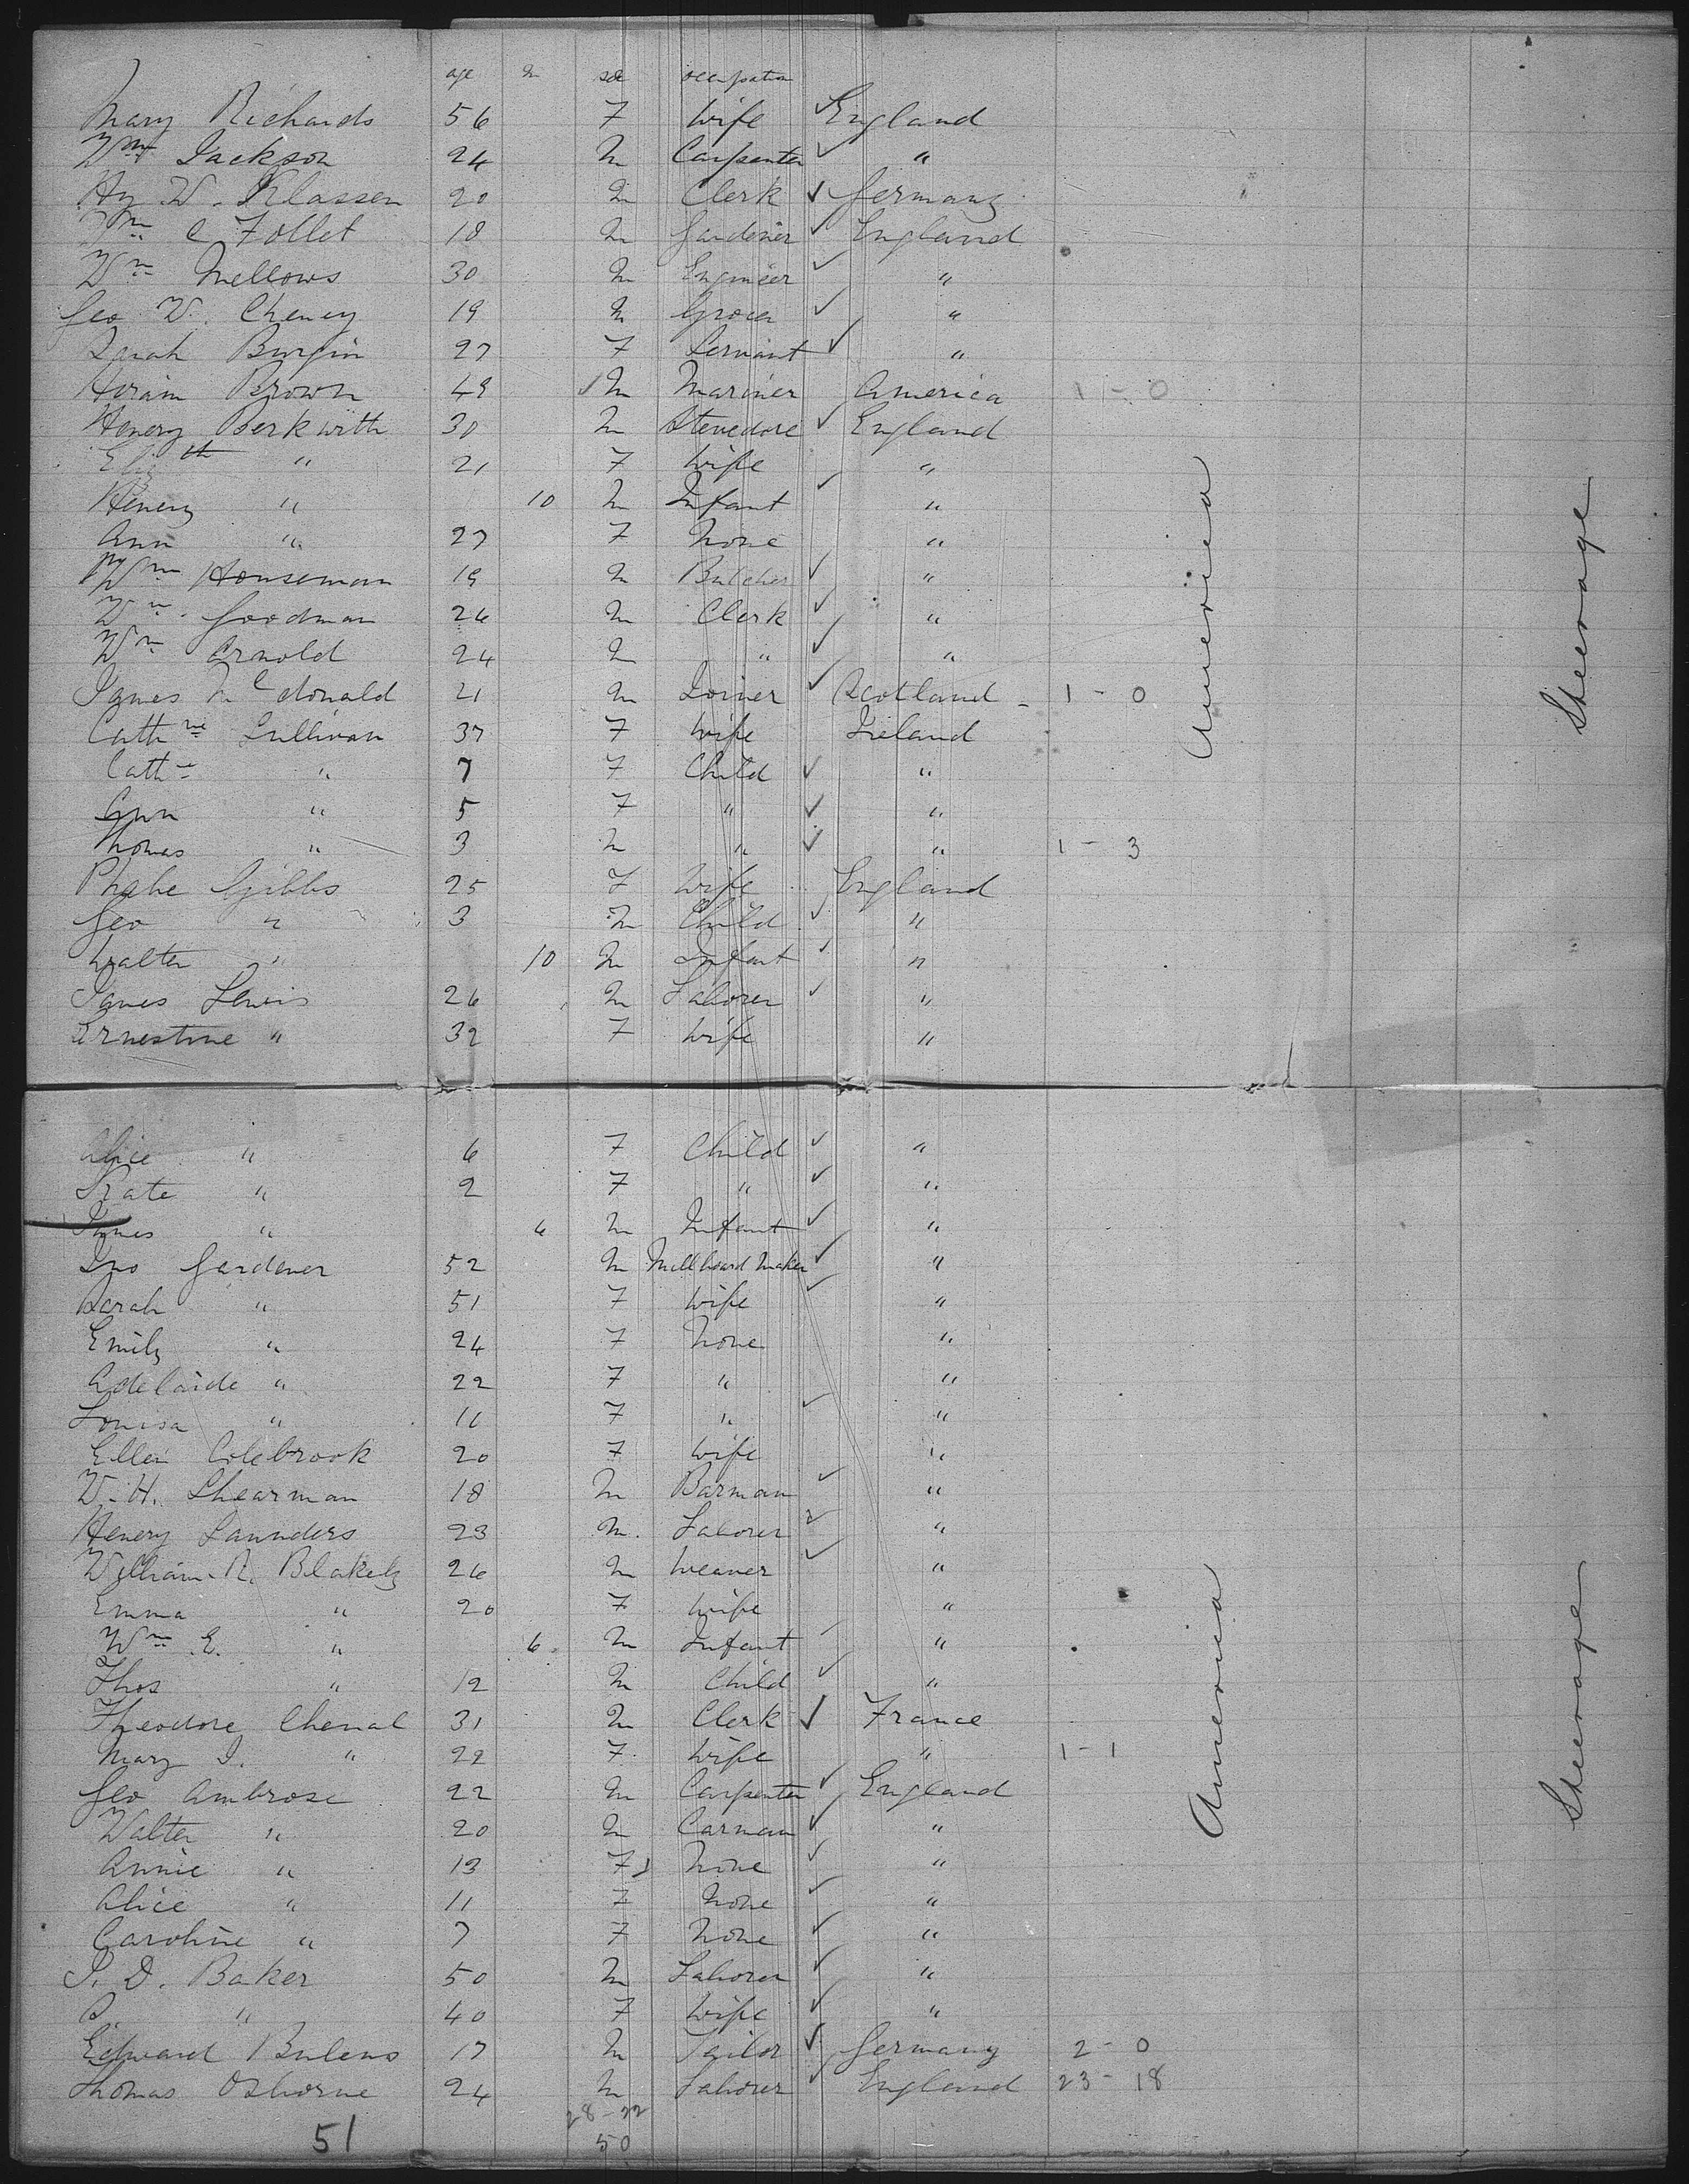 age m sex occupation
Mary Richards 56 F Wife ✓ England
Wm Jackson 24 M Carpenter ✓ "
Hy W. Klassen 20 M Clerk ✓ Germany
Wm C Follet 18 M Gardener ✓ England
Wm Mellows 30 M Engineer ✓ "
Geo W. Cheney 19 M Grocer ✓ "
Sarah Burgin 27 F Servant ✓ "
Hiram Brown 49 ✓ M Mariner America 1 - 0
Henery Berkwith 30 M Stevedore ✓ England
Elizth " 21 F Wife "
Henery " 10 M Infant ✓ "
Ann " 27 F None "
Wm Houseman 19 M Butcher ✓ "
Wm Goodman 26 M Clerk ✓ "
Wm Arnold 24 M " ✓ "
James Mcdonald 21 M Joiner ✓ Scotland - 1 - 0
Cathne Sullivan 37 F Wife Ireland
Cathe " 7 F Child ✓ "
Ann " 5 F " ✓ "
Thomas " 3 M " ✓ " 1 - 3
Phebe Gibbs 25 F Wife England
Geo " 3 M Child ✓ "
Walter " 10 M Infant ✓ "
James Lewis 26 M Laborer ✓ "
Ernestine " 32 F Wife "
America
Steerage
Alice " 6 F Child ✓ "
Kate " 2 F " ✓ "
James " 6 M Infant ✓ "
Jno Gardener 52 M Millboard Maker ✓ "
Sarah " 51 F Wife ✓ "
Emily " 24 F None "
Adelaide " 22 F " "
Louisa " 11 F " ✓ "
Ellen Colebrook 20 F Wife "
W. H. Shearman 18 M Barman ✓ "
Henery Saunders 23 M. Laborer ✓ "
William R. Blakely 26 M Weaver ✓ "
Emma " 20 F Wife "
Wm E. " 6 M Infant ✓ "
Thos " 12 M Child ✓ "
Theodore Chenal 31 M Clerk ✓ France
Mary J. " 22 F Wife " 1 - 1
Geo Ambrose 22 M Carpenter ✓ England
Walter " 20 M Carman ✓ "
Annie " 13 F None ✓ "
Alice " 11 F None ✓ "
Caroline " 7 F None ✓ "
J. D. Baker 50 M Laborer ✓ "
" 40 F Wife ✓ "
Edward Bulens 17 M Tailor ✓ Germany 2 - 0
Thomas Osborne 24 M Laborer ✓ England 23 - 18
America
Steerage
28 - 22
51 50